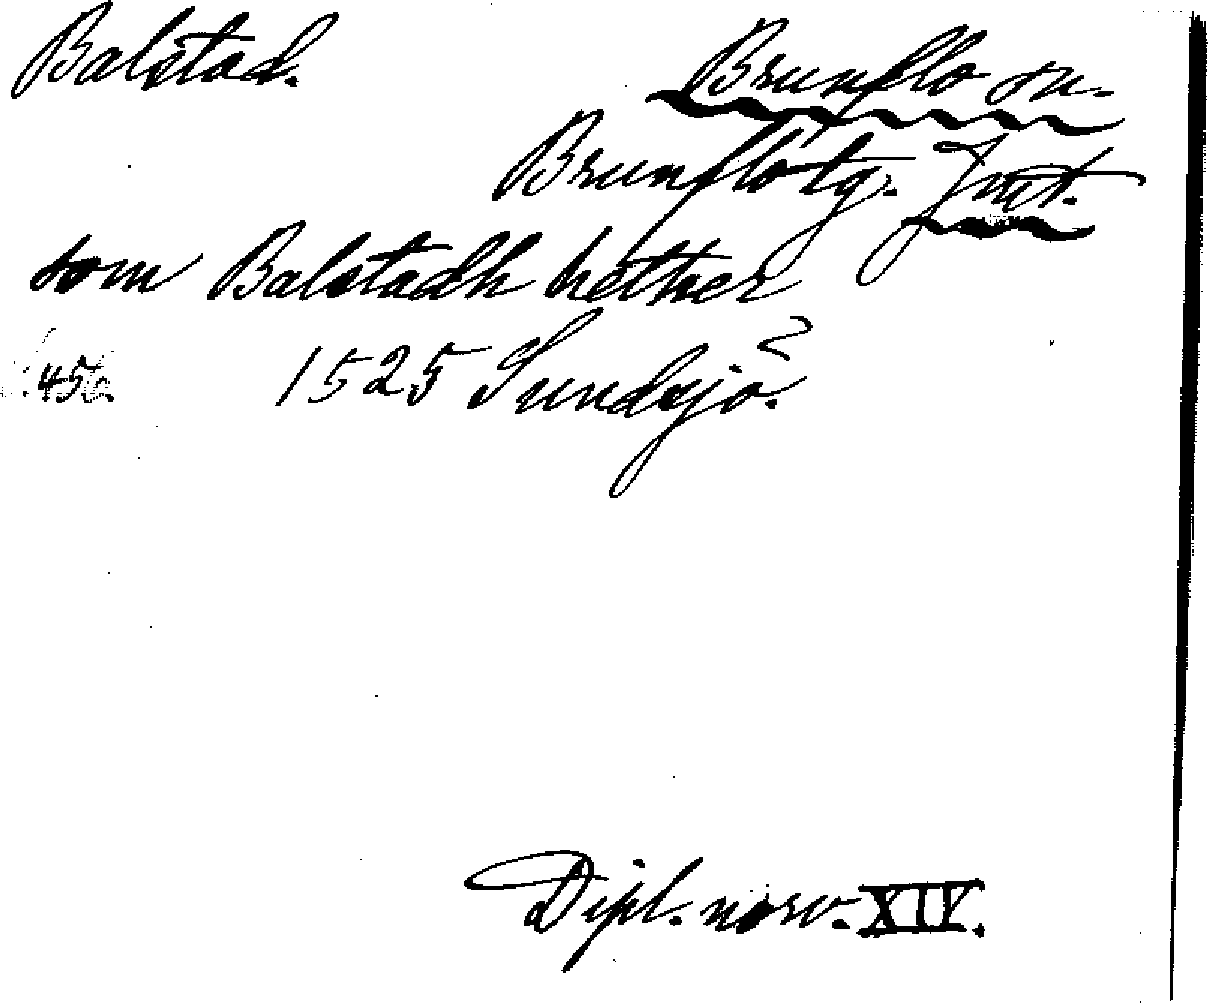 Balstad. Brunflo sn.
Brunflo tg. Jmt.
som Balstadh hether
1525 Sundsjö?
Dipl. norv. XIV.